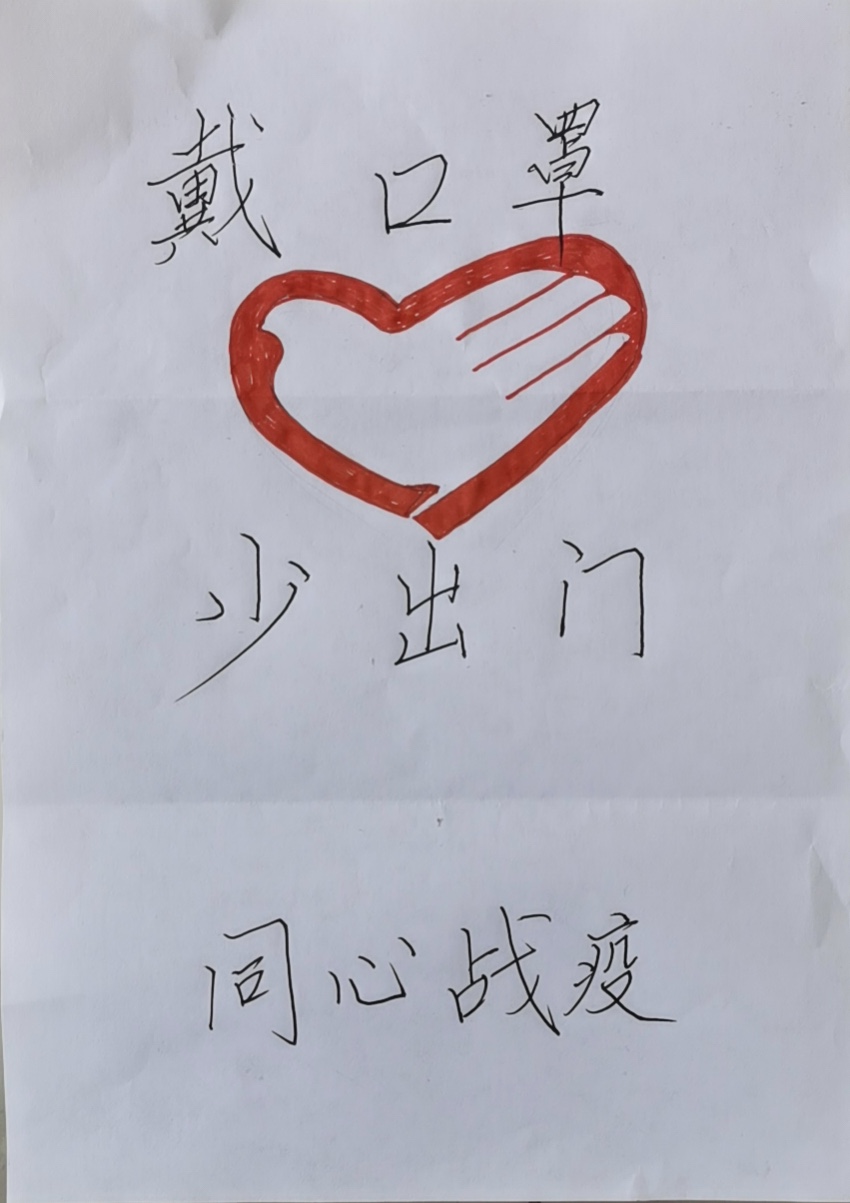 戴口罩
少出门
同心战疫